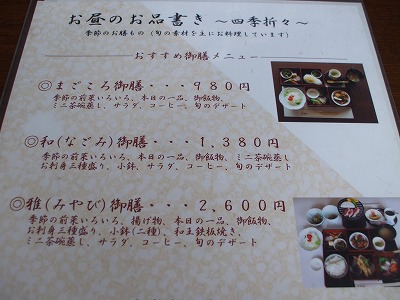 お昼のお品書き ～四季折々～
季節のお膳もの（旬の素材を主にお料理しています）
おすすめ御膳メニュー
◎まごころ御膳・・・９８０円
季節の前菜いろいろ、本日の一品、御飯物、
ミニ茶碗蒸し、サラダ、コーヒー、旬のデザート
◎和(なごみ)御膳・・・１,３８０円
季節の前菜いろいろ、本日の一品、御飯物、ミニ茶碗蒸し
お刺身三種盛り、小鉢、サラダ、コーヒー、旬のデザート
◎雅(みやび)御膳・・・２,６００円
季節の前菜いろいろ、揚げ物、本日の一品、御飯物、
お刺身三種盛り、小鉢(二種)、和王鉄板焼き、
ミニ茶碗蒸し、サラダ、コーヒー、旬のデザート